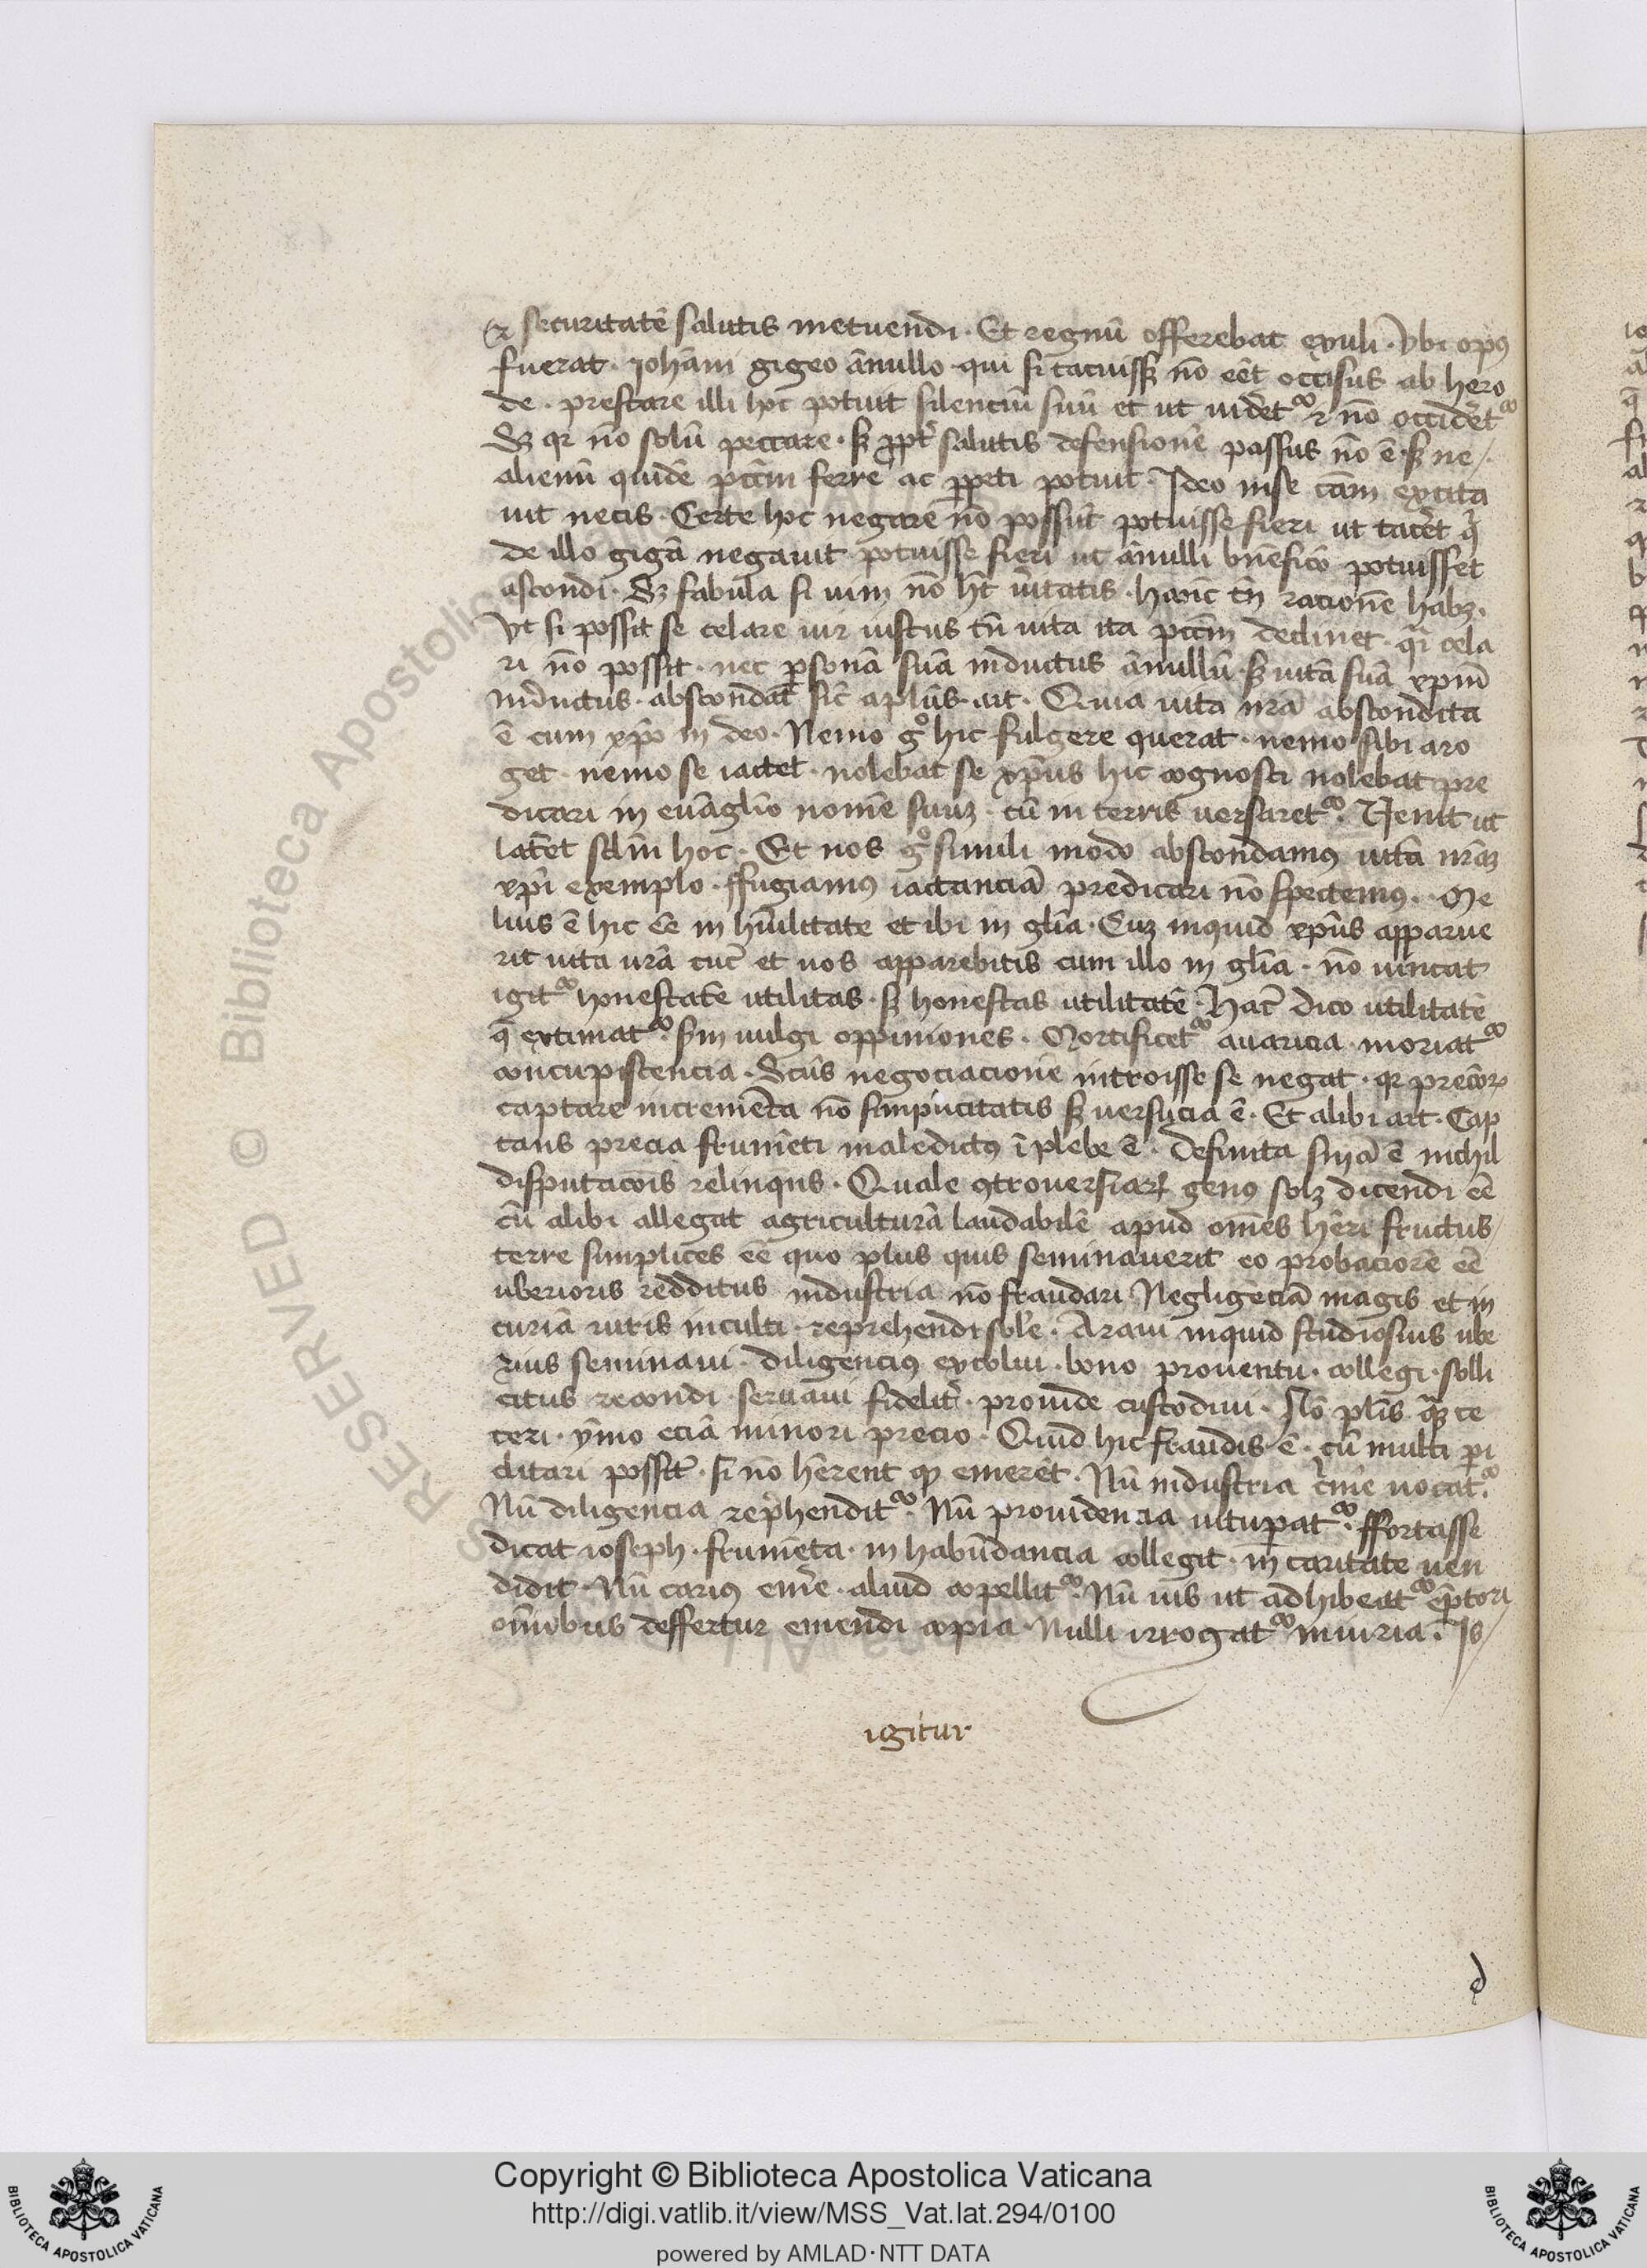 ⁊ securitatē salutis metuendi. Et regnū offerebat exuli. vbi opꝰ
fuerat. Johāni gigeo ānullo. qui si tacuisꝫ nō eēt occisus ab hero
de. prestare illi hoc potuit silenciū suū et ut uidet᷑ ⁊ nō occidet᷑
Sꝫ qr nō solū peccare. sꝫ ꝓpt̓ salutis defensionē passus nō ē. sꝫ ne
alienū quidē pctm̄ ferre ac ꝑpeti potuit. Ideo in se cām excita
uit necis. Certe hoc negare nō possūt potuisse fieri ut tacēt q̄
de illo gigā negauit potuisse fieri ut ānulli bn̄eficō potuisset
ascondi. Sꝫ fabula si uim nō hꝫt ūitatis. hanc tn̄ racionē habꝫ.
Vt si possit se celare uir iustus tn̄ uita ita pctm̄ declinet. q̄i cela
ri nō possit. nec ꝑsonā suā inductus ānullū. sꝫ uitā suā xpm̄
inductus. abscondat sic̄ aplūs. ait. Quia uita nr̄a abscondita
ē cum xp̄o in deo. Nemo gͦ hic fulgere querat. nemo sibi aro
get. nemo se iactet. nolebat se xp̄us hic cognosci nolebat pre
dicari in euāglīo nomē suuꝫ. cū in terris uersaret᷑. Uenit ut
latēet sclm̄ hoc. Et nos gͦ simili modo abscondamꝰ uitā nr̄aꝫ
xpī exemplo. ffugiamꝰ iactanciā predicari nō spectemꝰ. Me
lius ē hic eē in hūilitate et ibi in glīa. Cuꝫ inquid xp̄us apparue
rit uita ur̄a tūc et uos apparebitis cum illo in glīa. nō uincat
igit᷑ honestatē utilitas. sꝫ honestas utilitatē. Hāc dico utilitatē
q̄ extimat᷑. scd̄m uulgi oppiniones. Mortificet᷑ auaricia. moriat᷑
concupiscencia. Scūs negociacionē introisse se negat. qr precioꝝ
captare incremēta nō simplicitatis sꝫ uersucia ē. Et alibi ait. Cap
tans precia frumēti maledictꝰ ī plebe ē. definita snīa ē nichil
disputacōis relinquēs. Quale ꝯtrouersiaꝝ genꝰ solꝫ dicendi eē
cū alibi allegat agriculturā laudabilē apud om̄es hēri fructus
terre simplices eē quo plus quis seminauerit eo probaciorē eē
uberioris redditus industria nō fraudari Negligēciā magis et in
curiā ruris inculti. reprehendi solˀe. Araui inquid studiosius ube
rius seminaui. diligenciꝰ excolui. bono prouentu. collegi. solli
citus recondi seruaui fidelit̓. prouide custodiui. Nō plīs q̄ꝫ ce
teri. ymo eciā minori precio. Quid hic fraudis ē. cū multi pi
clitari possīt. si nō hērent qꝫ emerēt. Nū industria c̓me uocat᷑.
Nū diligencia rep̓hendit᷑. Nū prouidencia uitupat᷑. ffortasse
dicat ioseph. frumēta. in habundancia collegit. in caritate uen
didit. Nū cariꝰ emˀe. aliud copellit᷑. Nū uis ut adhibeat᷑ ēptori
om̄ibus deffertur emendi copia. Nulli irrogat᷑ iniuria. Is
igitur
d
RESERVED © Biblioteca Apostolica
Copyright © Biblioteca Apostolica Vaticana
http://digi.vatlib.it/view/MSS_Vat.lat.294/0100
powered by AMLAD·NTT DATA
BIBLIOTECA APOSTOLICA VATICANA
BIBLIOTECA APOSTOLICA VATICANA